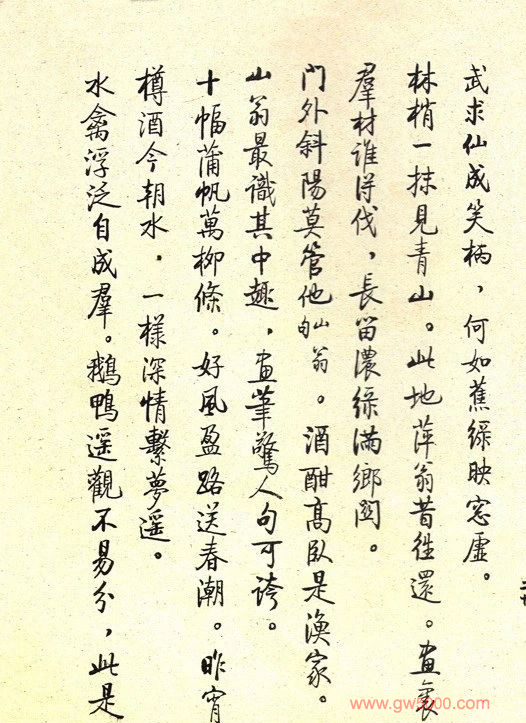 武求仙成笑柄，何如蕉綠映窓虛。
林梢一抹見青山。此地萍翁昔往還。畫裏
羣材誰得伐，長留濃綠滿鄉関。
門外斜陽莫管他山翁句。酒酣高臥是漁家。
山翁最識其中趣，畫筆驚人句可誇。
十幅蒲帆萬柳條。好風盈路送春潮。昨宵
樽酒今朝水，一樣深情繫夢遥。
水禽浮泛自成羣。鵝鴨遥觀不易分，此是
www.gw5000.com